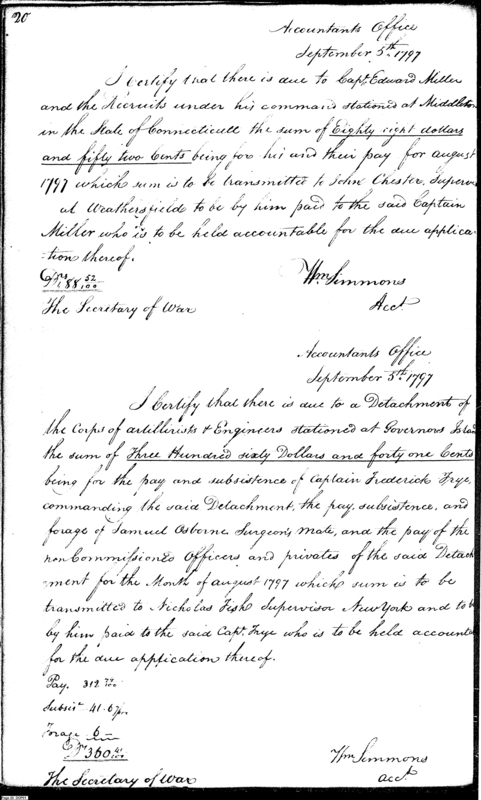 20
Accountants Office
September 5th 1797
I Certify that there is due to Capt. Edward Miller
and the Recruits under his command stationed at Middleton
in the State of Connecticutt the sum of Eighty eight dollars
and fifty two Cents being for his and their pay for august
1797 which sum is to be transmitted to John Chester, Supervi
at Weathersfield to be by him paid to the said Captain
Miller who is to be held accountable for the due applica-
-tion thereof.
Drs 88 52/100
Wm Simmons
The Secretary of War
Acct.
Accountants Office
September 5th 1797
I Certify that there is due to a Detachment of
the Corps of artillerists & Engineers stationed at Governors Island
the sum of Three Hundred sixty Dollars and forty one Cents
being for the pay and subsistence of Captain Frederick Frye,
commanding the said Detachment, the pay, subsistence, and
forage of Samuel Osborne Surgeons Mate, and the pay of the
non Commissioned Officers and privates of the said Detach
-ment for the Month of august 1797 which sum is to be
transmitted to Nicholas Fish Supervisor New York and to be
by him paid to the said Capt. Frye who is to be held accounta
for the due application thereof.
Pay. 312
Subsist. 41.
Forage 6
Drs 360 41/100
Wm Simmons
The Secretary of War
acct